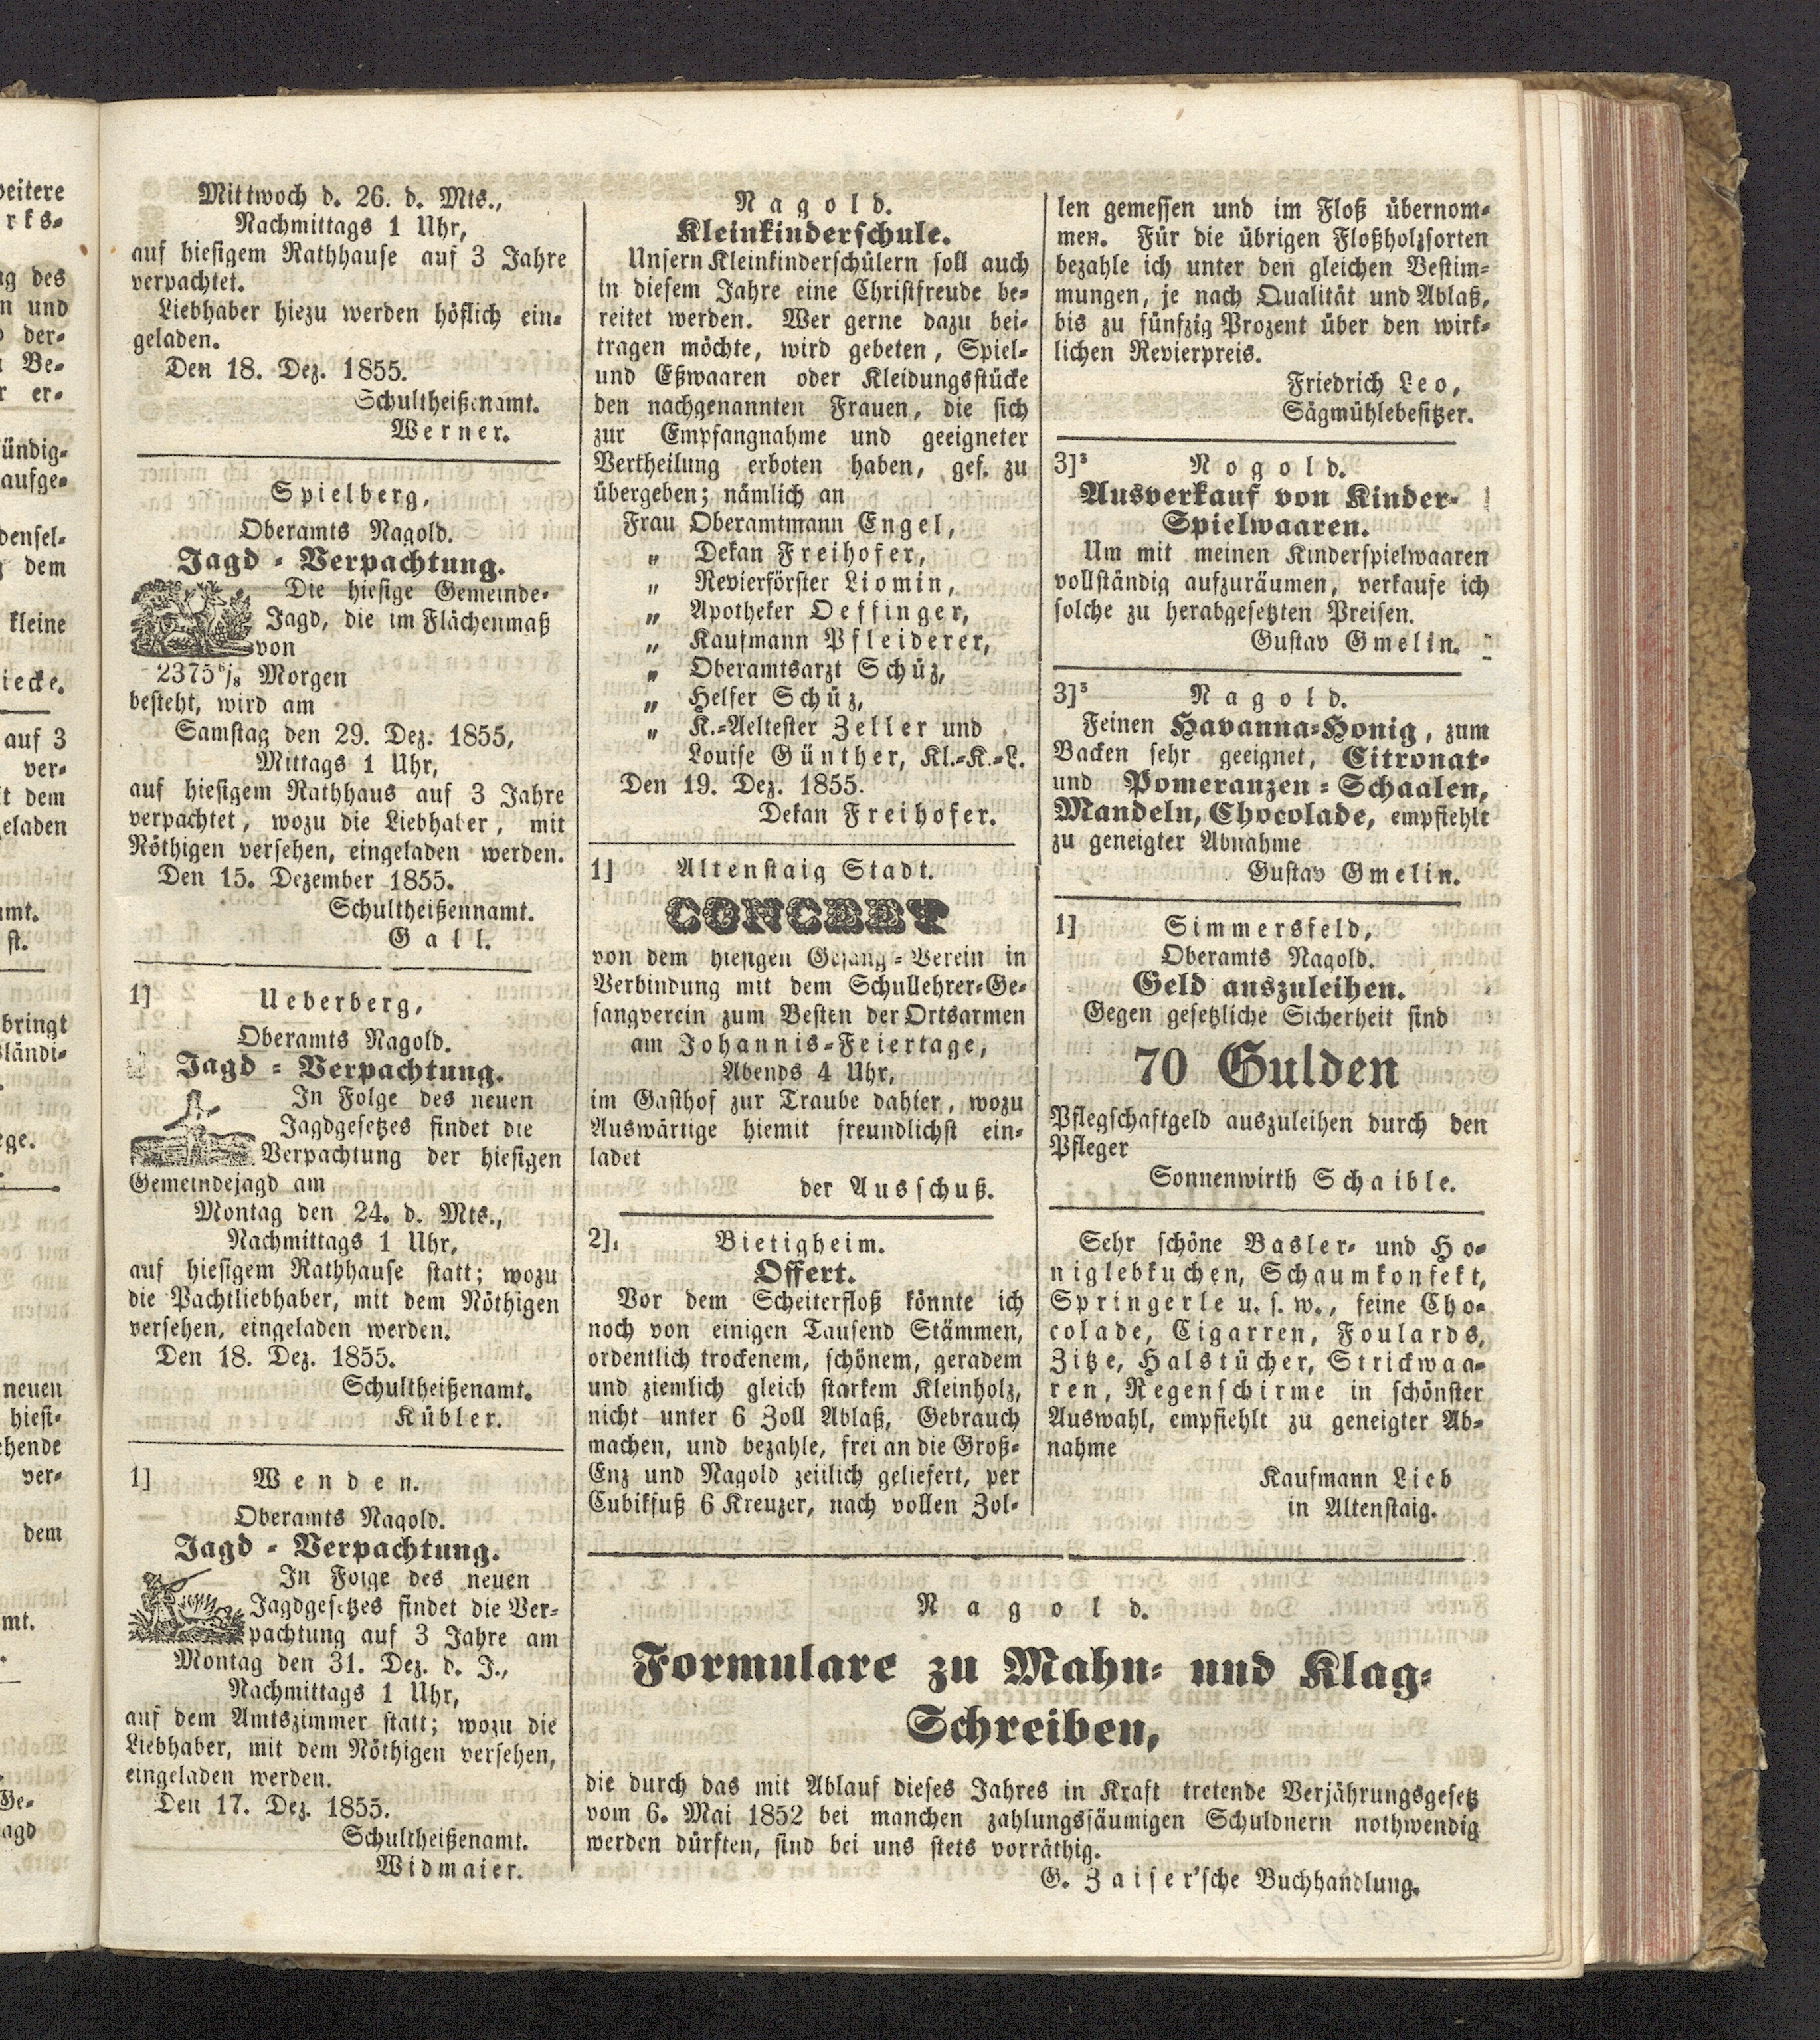 Mittwoch d. 26. d. Mts.,
Nachmittags 1 Uhr,
auf hiesigem Rathhause auf 3 Jahre
verpachtet.
Liebhaber hiezu werden höflich ein-
geladen.
Den 18. Dez. 1855.
Schultheißenamt.
Werner.
Spielberg,
Oberamts Nagold.
Jagd-Verpachtung.
Die hiesige Gemeinde-
Jagd, die im Flächenmaß
von
2375 6/8 Morgen
besteht, wird am
Samstag den 29. Dez. 1855,
Mittags 1 Uhr,
auf hiesigem Rathhaus auf 3 Jahre
verpachtet, wozu die Liebhaber, mit
Nöthigen versehen, eingeladen werden.
Den 15. Dezember 1855.
Schultheißennamt.
Gall.
1] Ueberberg,
Oberamts Nagold.
Jagd-Verpachtung.
In Folge des neuen
Jagdgesetzes findet die
Verpachtung der hiesigen
Gemeindejagd am
Montag den 24. d. Mts.,
Nachmittags 1 Uhr,
auf hiesigem Rathhause statt; wozu
die Pachtliebhaber, mit dem Nöthigen
versehen, eingeladen werden.
Den 18. Dez. 1855.
Schultheißenamt.
Kübler.
1] Wenden.
Oberamts Nagold.
Jagd-Verpachtung.
In Folge des neuen
Jagdgesetzes findet die Ver-
pachtung auf 3 Jahre am
Montag den 31. Dez. d. J.,
Nachmittags 1 Uhr,
auf dem Amtszimmer statt; wozu die
Liebhaber, mit dem Nöthigen versehen,
eingeladen werden.
Den 17. Dez. 1855.
Schultheißenamt.
Widmaier.
Nagold.
Kleinkinderschule.
Unsern Kleinkinderschülern soll auch
in diesem Jahre eine Christfreude be-
reitet werden. Wer gerne dazu bei-
tragen möchte, wird gebeten, Spiel-
und Eßwaaren oder Kleidungsstücke
den nachgenannten Frauen, die sich
zur Empfangnahme und geeigneter
Vertheilung erboten haben, gef. zu
übergeben; nämlich an
Frau Oberamtmann Engel,
„ Dekan Freihofer,
„ Revierförster Liomin,
„ Apotheker Oeffinger,
„ Kaufmann Pfleiderer,
„ Oberamtsarzt Schüz,
„ Helfer Schüz,
„ K.-Aeltester Zeller und
Louise Günther, Kl.-K.-L.
Den 19. Dez. 1855.
Dekan Freihofer.
1] Altenstaig Stadt.
CONCERT
von dem hiesigen Gesang-Verein in
Verbindung mit dem Schullehrer-Ge-
sangverein zum Besten der Ortsarmen
am Johannis-Feiertage,
Abends 4 Uhr,
im Gasthof zur Traube dahier, wozu
Auswärtige hiemit freundlichst ein-
ladet
der Ausschuß.
2]1 Bietigheim.
Offert.
Vor dem Scheiterfloß könnte ich
noch von einigen Tausend Stämmen,
ordentlich trockenem, schönem, geradem
und ziemlich gleich starkem Kleinholz,
nicht unter 6 Zoll Ablaß, Gebrauch
machen, und bezahle, frei an die Groß-
Enz und Nagold zeitlich geliefert, per
Cubikfuß 6 Kreuzer, nach vollen Zol-
len gemessen und im Floß übernom-
men. Für die übrigen Floßholzsorten
bezahle ich unter den gleichen Bestim-
mungen, je nach Qualität und Ablaß,
bis zu fünfzig Prozent über den wirk-
lichen Revierpreis.
Friedrich Leo,
Sägmühlebesitzer.
3]3 Nogold.
Ausverkauf von Kinder-
Spielwaaren.
Um mit meinen Kinderspielwaaren
vollständig aufzuräumen, verkaufe ich
solche zu herabgesetzten Preisen.
Gustav Gmelin.
3]3 Nagold.
Feinen Havanna-Honig, zum
Backen sehr geeignet, Citronat-
und Pomeranzen-Schaalen,
Mandeln, Chocolade, empfiehlt
zu geneigter Abnahme
Gustav Gmelin.
1] Simmersfeld,
Oberamts Nagold.
Geld auszuleihen.
Gegen gesetzliche Sicherheit sind
70 Gulden
Pflegschaftgeld auszuleihen durch den
Pfleger
Sonnenwirth Schaible.
Sehr schöne Basler- und Ho-
niglebkuchen, Schaumkonfekt,
Springerle u. s. w., feine Cho-
colade, Cigarren, Foulards,
Zitze, Halstücher, Strickwaa-
ren, Regenschirme in schönster
Auswahl, empfiehlt zu geneigter Ab-
nahme
Kaufmann Lieb
in Altenstaig.
Nagold.
Formulare zu Mahn- und Klag-
Schreiben,
die durch das mit Ablauf dieses Jahres in Kraft tretende Verjährungsgesetz
vom 6. Mai 1852 bei manchen zahlungssäumigen Schuldnern nothwendig
werden dürften, sind bei uns stets vorräthig.
G. Zaiser'sche Buchhandlung.